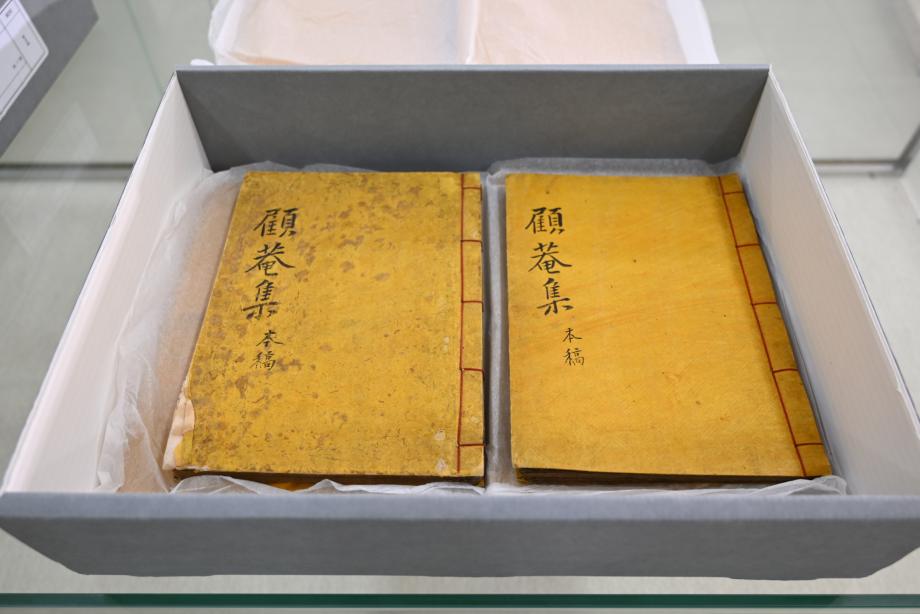 顧菴集
本稿
顧菴集
本稿